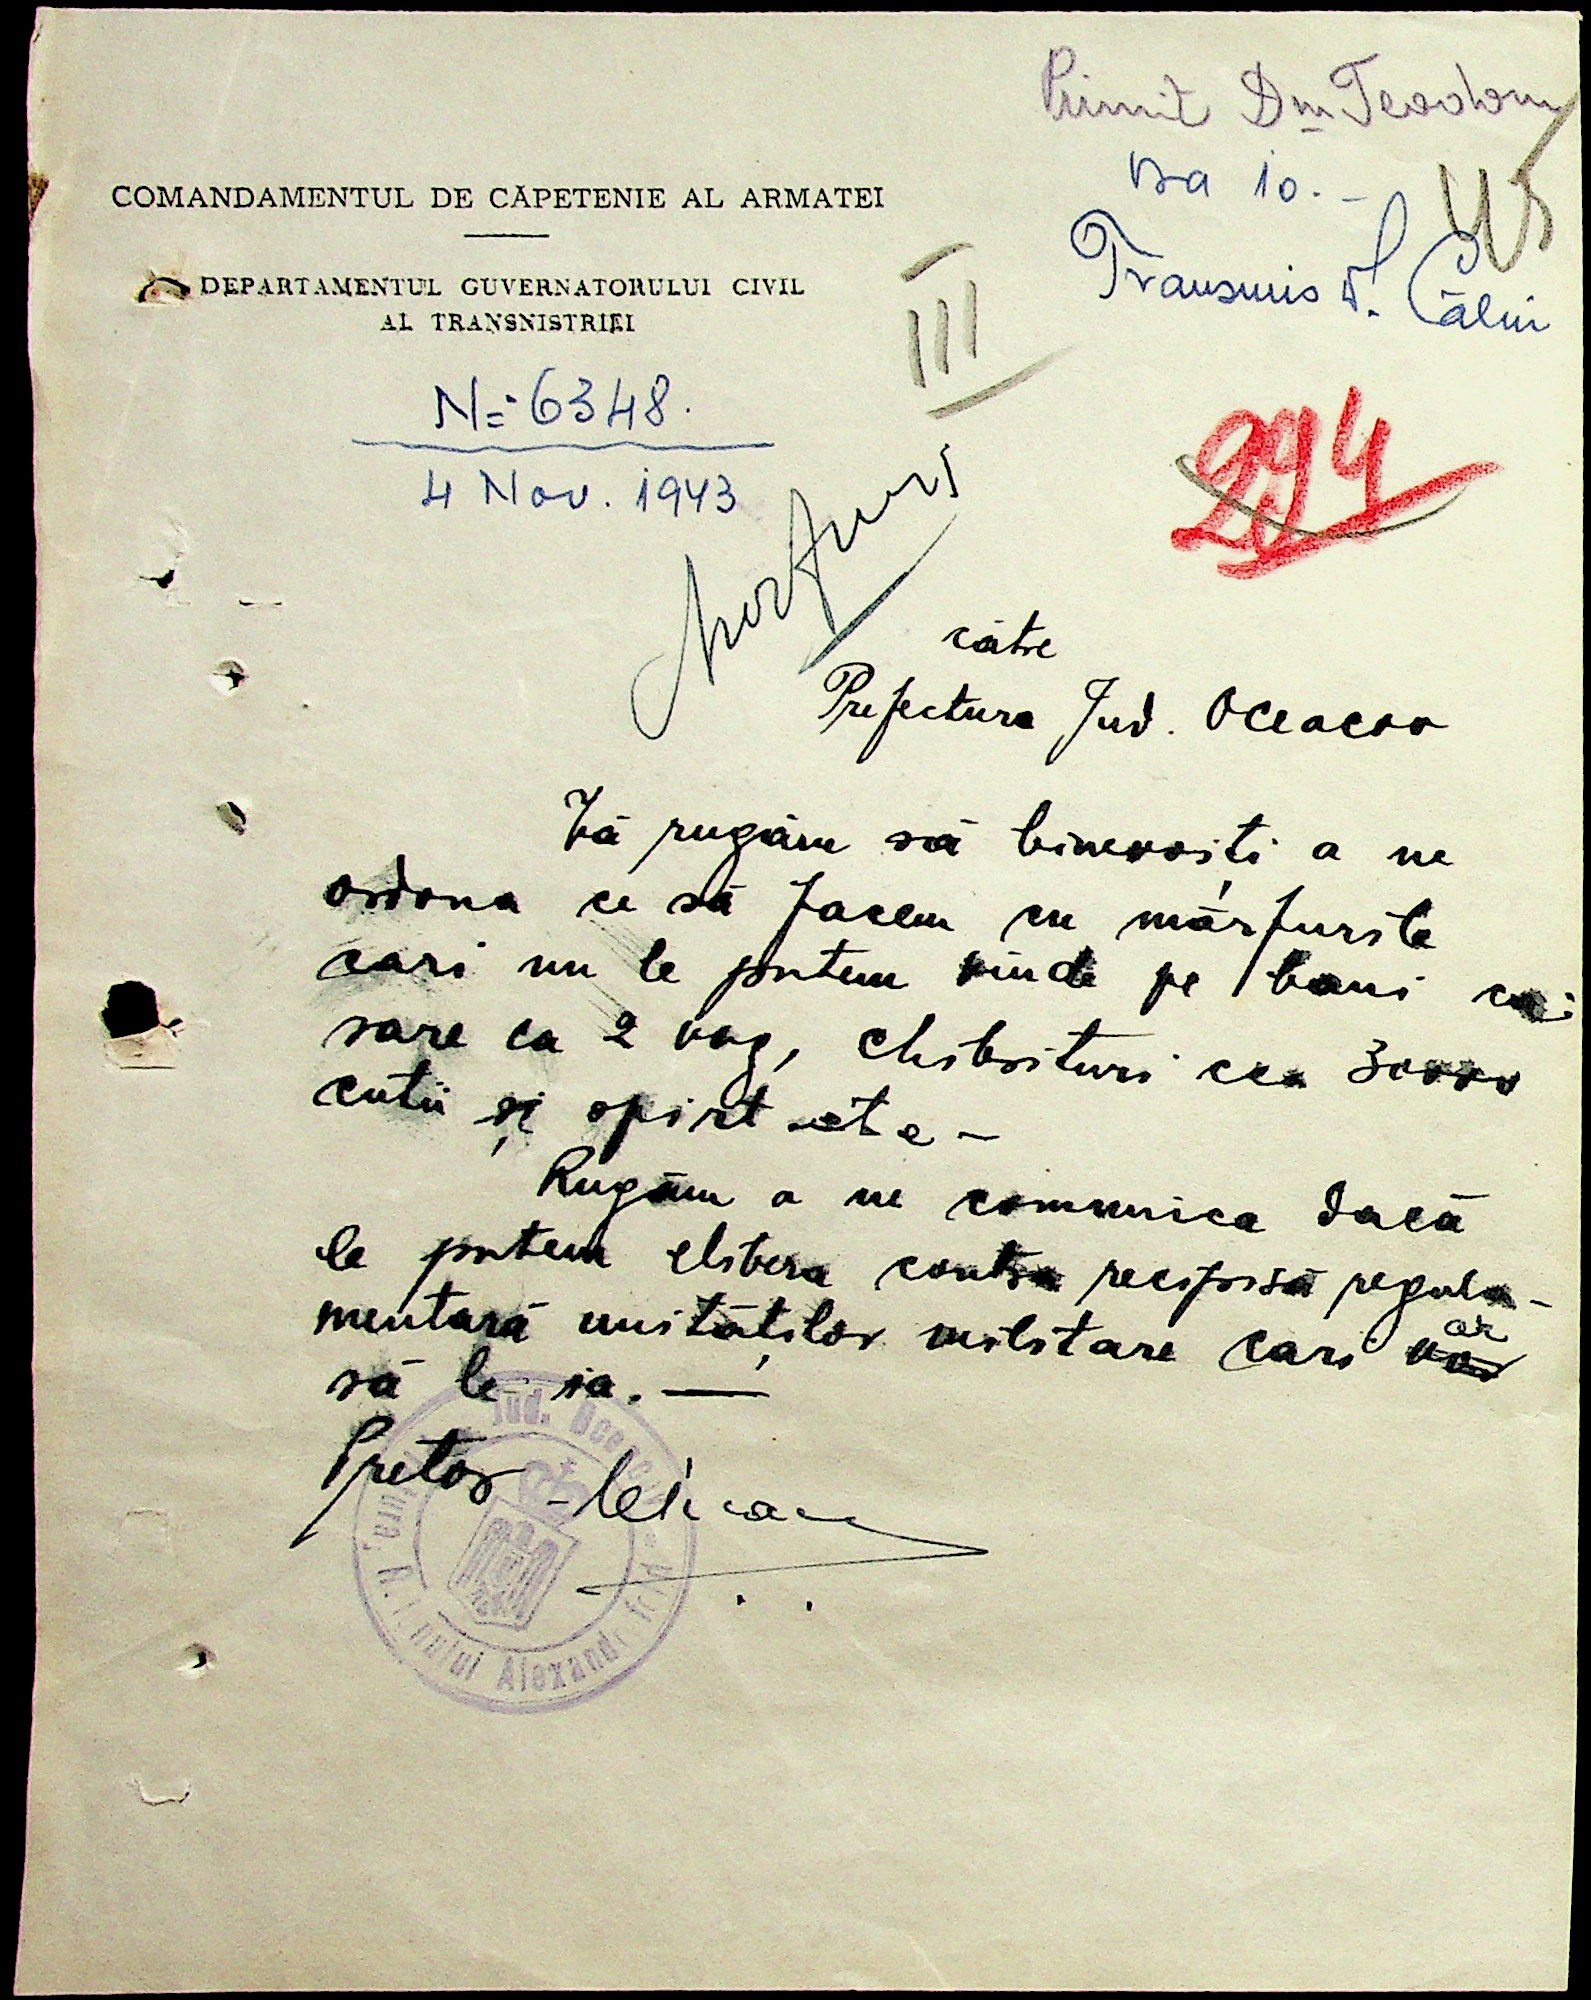 Primit Dm Teodoru
ora 10.-
Transmis D. Călin
COMANDAMENTUL DE CĂPETENIE AL ARMATEI
DEPARTAMENTUL GUVERNATORULUI CIVIL
AL TRANSNISTRIEI
III
No 6348.
4 Nov. 1943
294
Mărfuri
către
Prefectura Jud. Oceacov
Vă rugăm să binevoiți a ne
ordona ce să facem cu mărfurile
cari nu le putem vinde pe bani
sare ca 2 vag, chibrituri cca 30000
cutii și spirt etc-
Rugăm a ne comunica dacă
le putem elibera contra recipisă regula-
mentară unităților militare cari ar
să le ia.—
Pretor
Jud. Oceacov
Alexandr